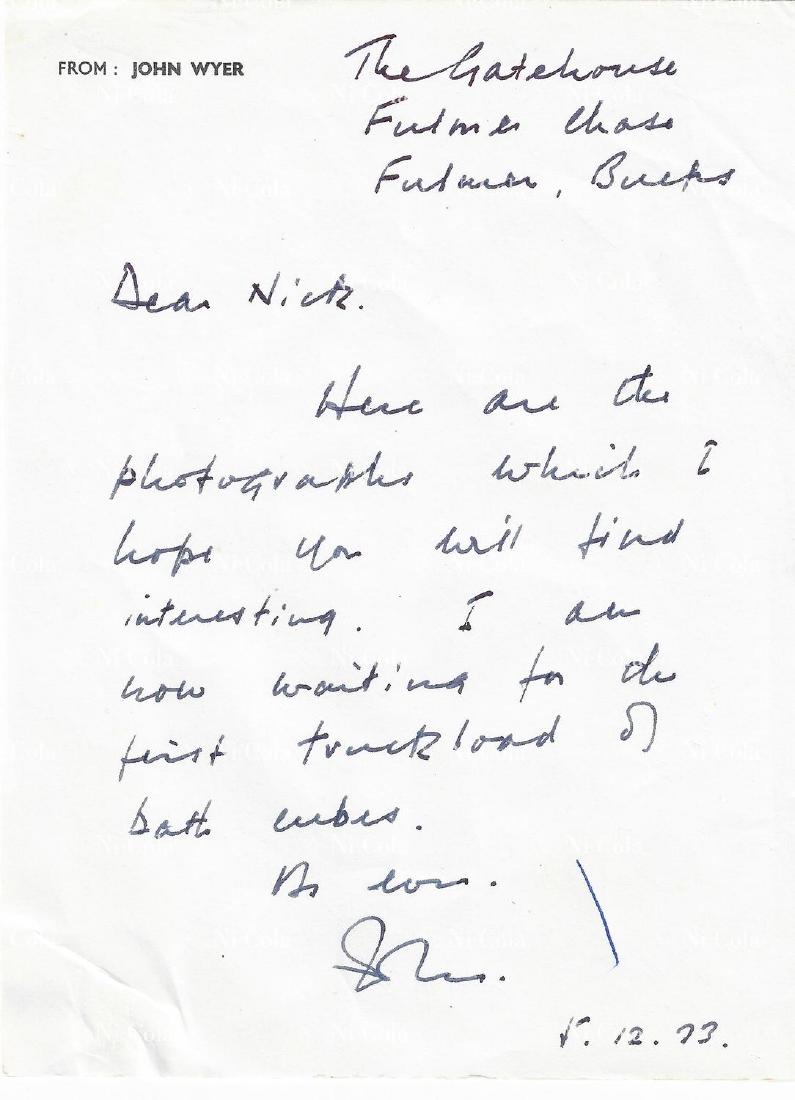 FROM: JOHN WYER
The Gatehouse
Fulmer Chase
Fulmer, Bucks
Dear Nick.
Here are the
photographs which I
hope you will find
interesting. I am
now waiting for the
first truckload of
bath cubes.
As ever.
John.
5.12.73.
Ni Cola